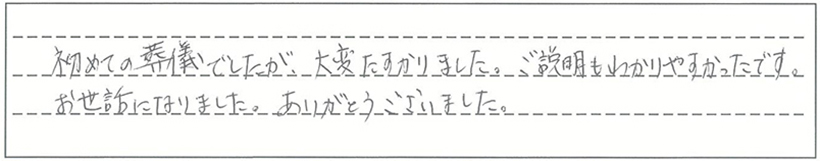 初めての葬儀でしたが、大変たすかりました。ご説明もわかりやすかったです。
お世話になりました。ありがとうございました。